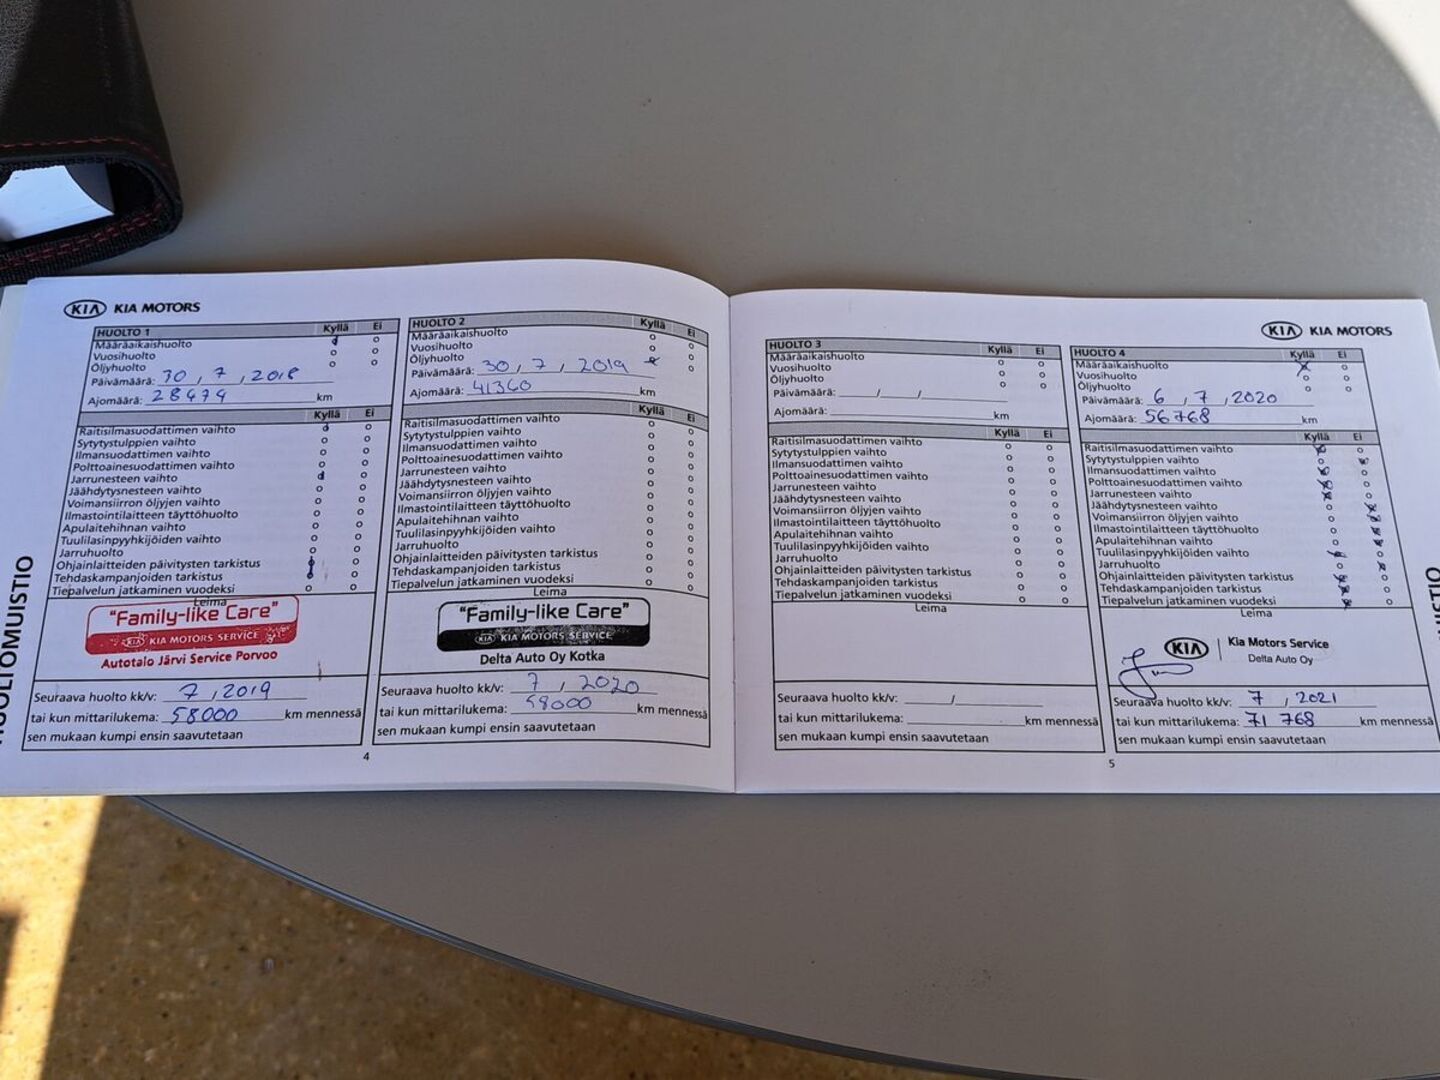 KIA KIA MOTORS
HUOLTO 1 Kyllä Ei
Määräaikaishuolto
Vuosihuolto
Öljyhuolto
Päivämäärä: 30 , 7 , 2018
Ajomäärä: 28474 km
Kyllä Ei
Raitisilmasuodattimen vaihto
Sytytystulppien vaihto
Ilmansuodattimen vaihto
Polttoainesuodattimen vaihto
Jarrunesteen vaihto
Jäähdytysnesteen vaihto
Voimansiirron öljyjen vaihto
Ilmastointilaitteen täyttöhuolto
Apulaitehihnan vaihto
Tuulilasinpyyhkijöiden vaihto
Jarruhuolto
Ohjainlaitteiden päivitysten tarkistus
Tehdaskampanjoiden tarkistus
Tiepalvelun jatkaminen vuodeksi
Leima
"Family-like Care"
KIA KIA MOTORS SERVICE
Autotalo Järvi Service Porvoo
Seuraava huolto kk/v: 7 , 2019
tai kun mittarilukema: 58000 km mennessä
sen mukaan kumpi ensin saavutetaan
4
HUOLTO 2 Kyllä Ei
Määräaikaishuolto
Vuosihuolto
Öljyhuolto
Päivämäärä: 30 , 7 , 2019
Ajomäärä: 41360 km
Kyllä Ei
Raitisilmasuodattimen vaihto
Sytytystulppien vaihto
Ilmansuodattimen vaihto
Polttoainesuodattimen vaihto
Jarrunesteen vaihto
Jäähdytysnesteen vaihto
Voimansiirron öljyjen vaihto
Ilmastointilaitteen täyttöhuolto
Apulaitehihnan vaihto
Tuulilasinpyyhkijöiden vaihto
Jarruhuolto
Ohjainlaitteiden päivitysten tarkistus
Tehdaskampanjoiden tarkistus
Tiepalvelun jatkaminen vuodeksi
Leima
"Family-like Care"
KIA KIA MOTORS SERVICE
Delta Auto Oy Kotka
Seuraava huolto kk/v: 7 , 2020
tai kun mittarilukema: 58000 km mennessä
sen mukaan kumpi ensin saavutetaan
KIA KIA MOTORS
HUOLTO 3 Kyllä Ei
Määräaikaishuolto
Vuosihuolto
Öljyhuolto
Päivämäärä: / /
Ajomäärä: km
Kyllä Ei
Raitisilmasuodattimen vaihto
Sytytystulppien vaihto
Ilmansuodattimen vaihto
Polttoainesuodattimen vaihto
Jarrunesteen vaihto
Jäähdytysnesteen vaihto
Voimansiirron öljyjen vaihto
Ilmastointilaitteen täyttöhuolto
Apulaitehihnan vaihto
Tuulilasinpyyhkijöiden vaihto
Jarruhuolto
Ohjainlaitteiden päivitysten tarkistus
Tehdaskampanjoiden tarkistus
Tiepalvelun jatkaminen vuodeksi
Leima
Seuraava huolto kk/v: /
tai kun mittarilukema: km mennessä
sen mukaan kumpi ensin saavutetaan
5
HUOLTO 4 Kyllä Ei
Määräaikaishuolto
Vuosihuolto
Öljyhuolto
Päivämäärä: 6 , 7 , 2020
Ajomäärä: 56768 km
Kyllä Ei
Raitisilmasuodattimen vaihto
Sytytystulppien vaihto
Ilmansuodattimen vaihto
Polttoainesuodattimen vaihto
Jarrunesteen vaihto
Jäähdytysnesteen vaihto
Voimansiirron öljyjen vaihto
Ilmastointilaitteen täyttöhuolto
Apulaitehihnan vaihto
Tuulilasinpyyhkijöiden vaihto
Jarruhuolto
Ohjainlaitteiden päivitysten tarkistus
Tehdaskampanjoiden tarkistus
Tiepalvelun jatkaminen vuodeksi
Leima
KIA Kia Motors Service
Delta Auto Oy
Seuraava huolto kk/v: 7 , 2021
tai kun mittarilukema: 71 768 km mennessä
sen mukaan kumpi ensin saavutetaan
HUOLTOMUISTIO